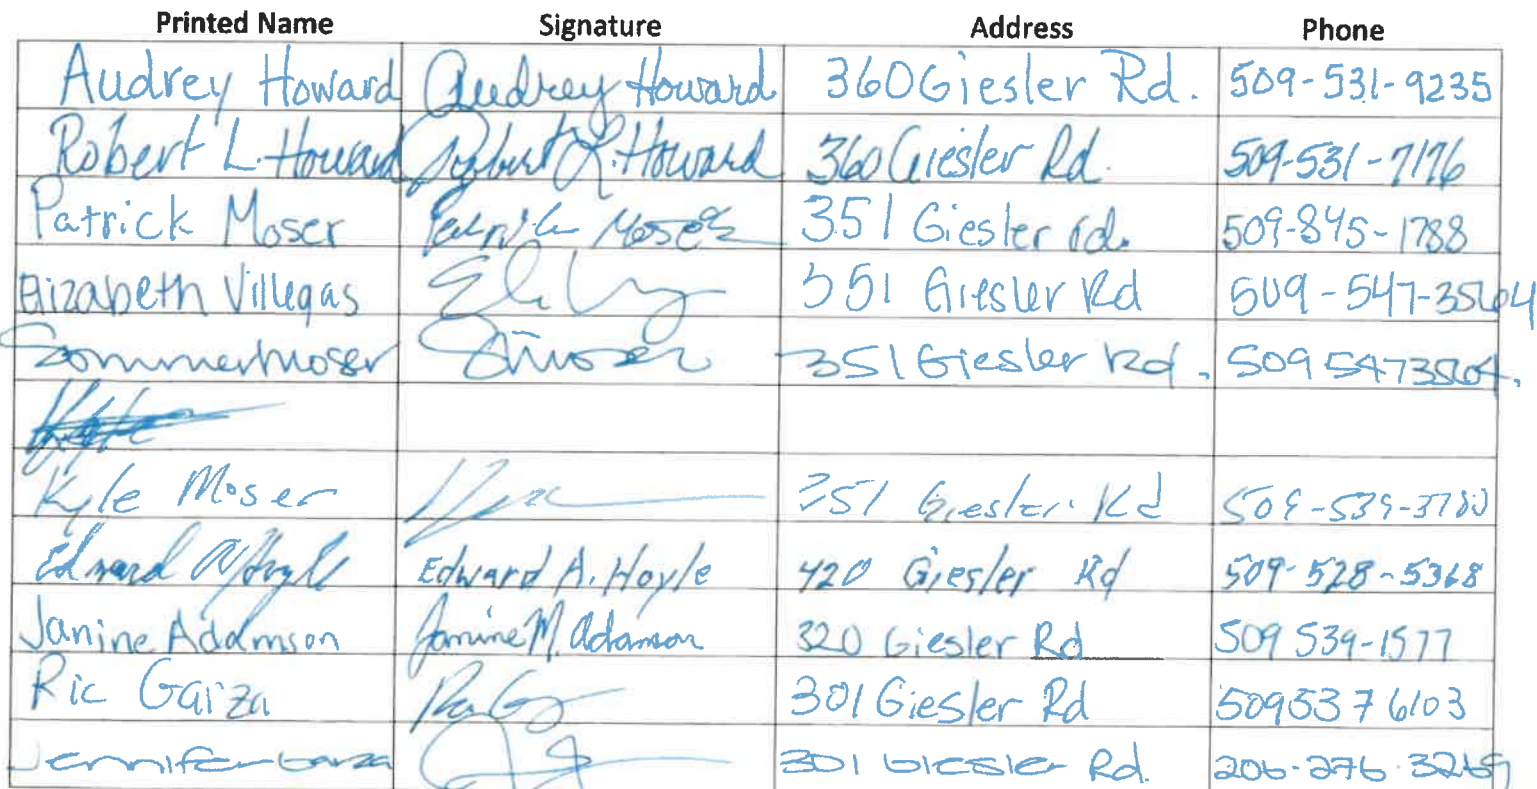 Printed Name Signature Address Phone
Audrey Howard Audrey Howard 360 Giesler Rd. 509-531-9235
Robert L. Howard Robert L. Howard 360 Giesler Rd. 509-531-7176
Patrick Moser Patrick Moser 351 Giesler rd. 509-845-1788
Elizabeth Villegas 351 Giesler Rd 509-547-3564
Sommer Moser S Moser 351 Giesler Rd. 509 547 3564.
Kyle Moser 351 Giesler Rd
Edward A Hoyle Edward A. Hoyle 420 Giesler Rd 509-528-5368
Janine Adamson Janine M. Adamson 320 Giesler Rd 509 539-1577
Ric Garza 301 Giesler Rd 509 537 6103
Jennifer Garza 301 Giesler Rd. 206-276-3269